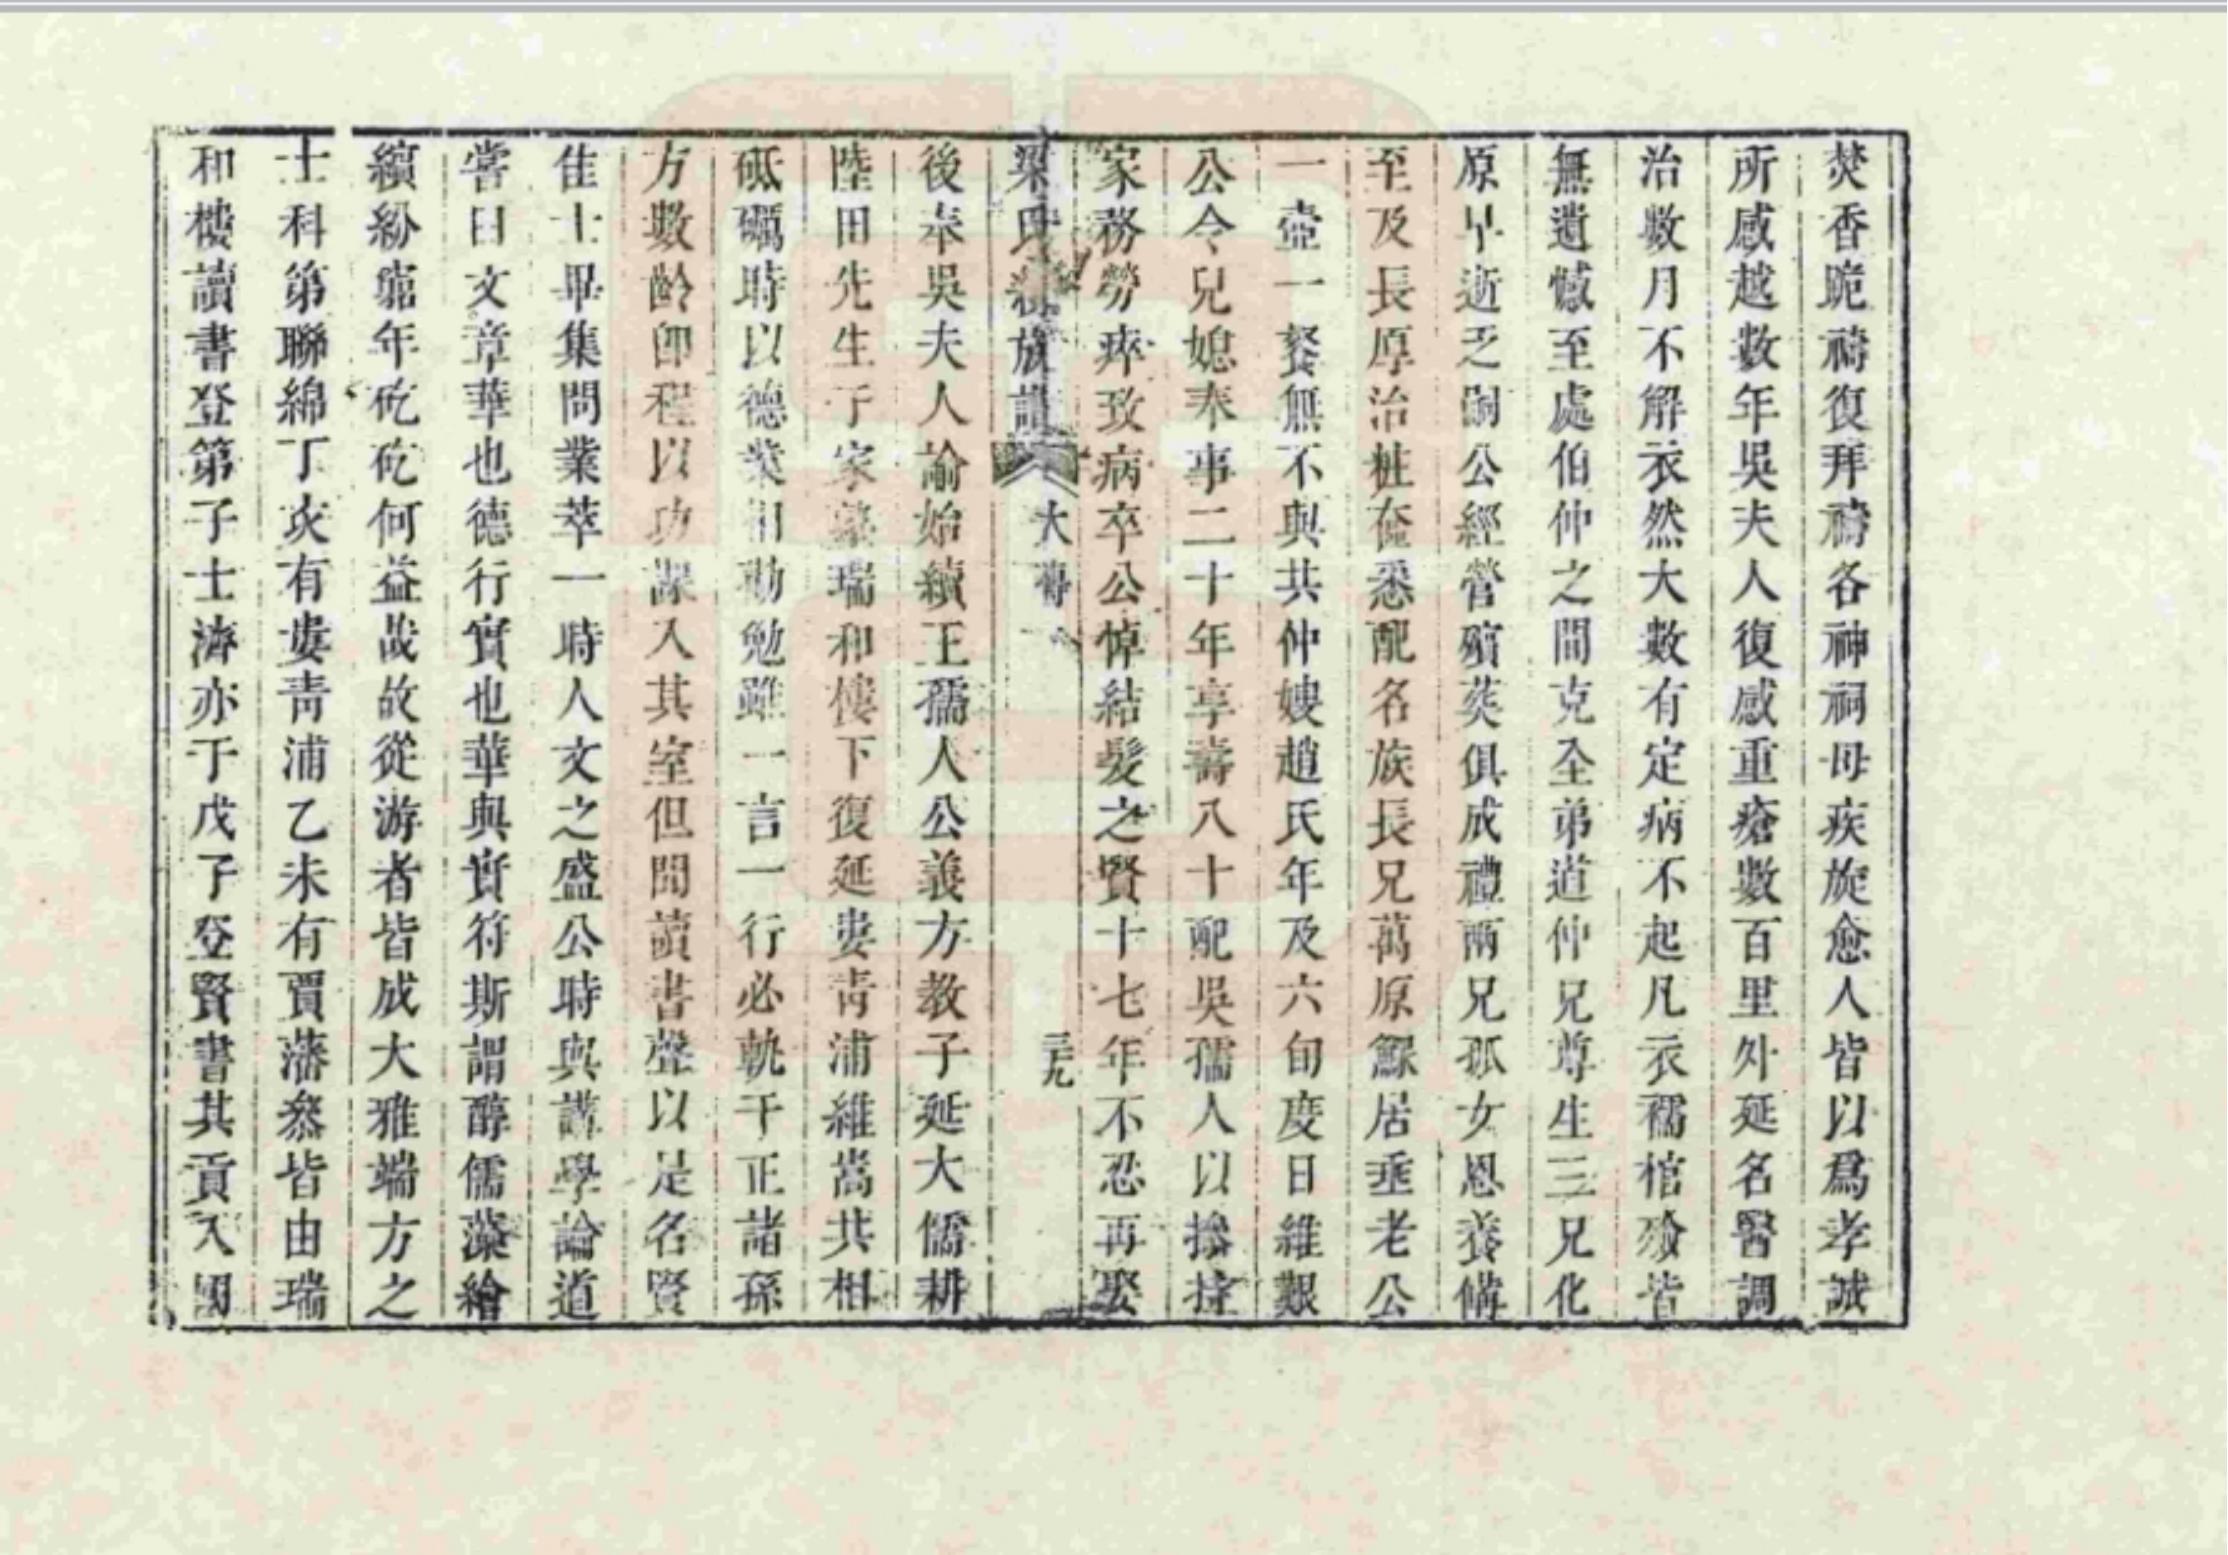 焚香跪禱復拜禱各神祠母疾旋愈人皆以爲孝誠
所感越數年吳夫人復感重瘡數百里外延名醫調
治數月不解衣然大數有定病不起凡衣襦棺殮皆
無遺憾至處伯仲之間克全弟道仲兄尊生三兄化
原早逝乏嗣公經營殯葬俱成禮兩兄孤女恩養備
至及長原治粧奩悉配名族長兄萬原鰥居垂老公
一壺一餐無不與共仲嫂趙氏年及六旬度日維艱
公令兒媳奉事二十年享壽八十配吳孺人以操持
家務勞瘁致病卒公悼結髮之賢十七年不忍再娶
梁氏族譜 大傳 三九
後奉吳夫人諭始續王孺人公義方教子延大儒耕
陸田先生于家塾瑞和樓下復延婁青浦維嵩共相
砥礪時以德業相勸勉雖一言一行必軌于正諸孫
方數齡卽程以功課入其室但聞讀書聲以是名賢
佳士畢集問業萃一時人文之盛公時與講學論道
嘗曰文章華也德行實也華與實符斯謂醇儒藻繪
繽紛窮年矻矻何益哉故從游者皆成大雅端方之
士科第聯綿丁亥有婁青浦乙未有賈藩叅皆由瑞
和樓讀書登第子士濟亦于戊子登賢書其貢入國